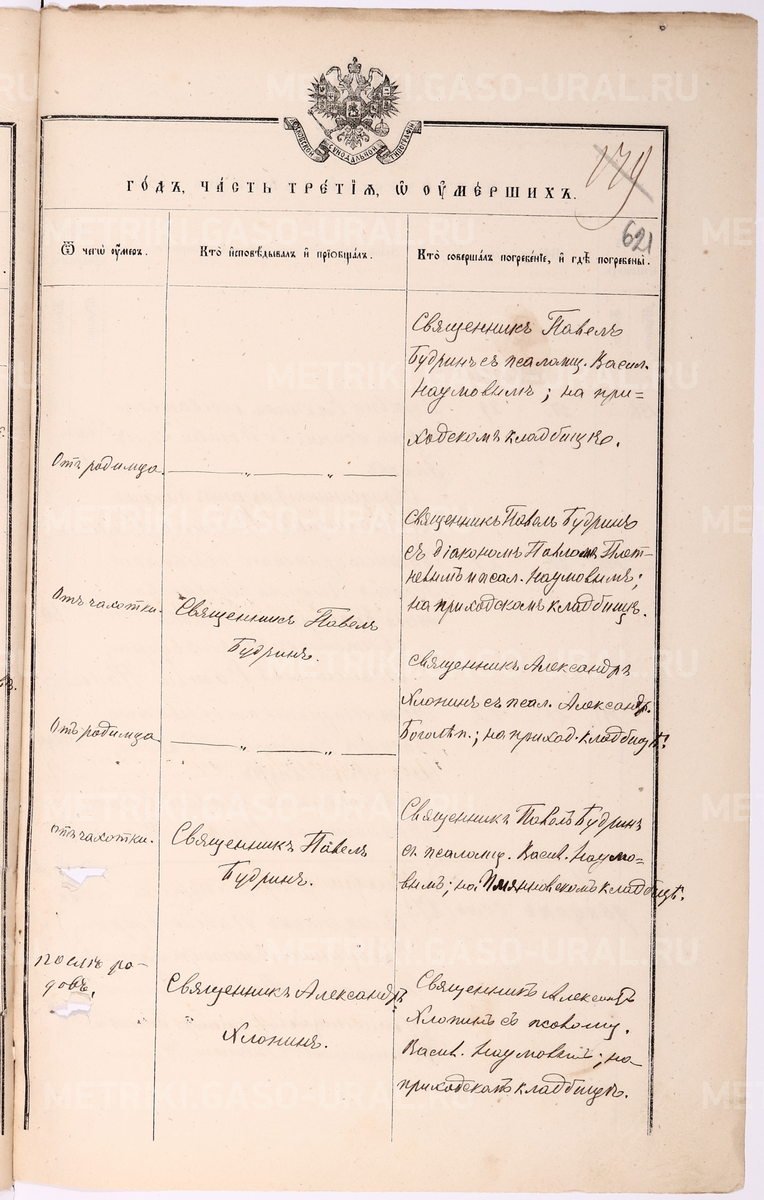 МОСКОВСКОЙ СѴНОДАЛЬНОЙ ТИПОГРАФІИ
179
ГО́ДЪ, ЧА́СТЬ ТРЕ́ТІѦ, Ѡ҆ ОУ҆МЕ́РШИХЪ.
621
Ѿ чегѡ̀ оу҆́меръ.
Кто̀ и҆сповѣ́дывалъ и҆ прїѡбща́лъ.
Кто̀ соверша́лъ погребе́нїе, и҆ гдѣ̀ погребены̀.
Священникъ Павелъ
Будринъ съ псаломщ. Васил.
Наумовымъ; на при=
ходскомъ кладбищѣ.
Отъ родимца.
Священникъ Павелъ Будринъ
съ діакономъ Павломъ Плет-
невымъ и псал. Наумовымъ;
на приходскомъ кладбищѣ.
Отъ чахотки.
Священникъ Павелъ
Будринъ.
Священникъ Александръ
Хлопинъ съ псал. Александр.
Боголѣп.; на приход. кладбищѣ.
Отъ родимца
Священникъ Павелъ Будринъ
съ псаломщ. Васил. Наумо=
вымъ; на кладбищѣ.
Отъ чахотки.
Священникъ Павелъ
Будринъ.
послѣ ро-
довъ.
Священникъ Александръ
Хлопинъ.
Священникъ Александръ
Хлопинъ съ псаломщ.
Васил. Наумовымъ; на
приходскомъ кладбищѣ.
METRIKI.GASO-URAL.RU